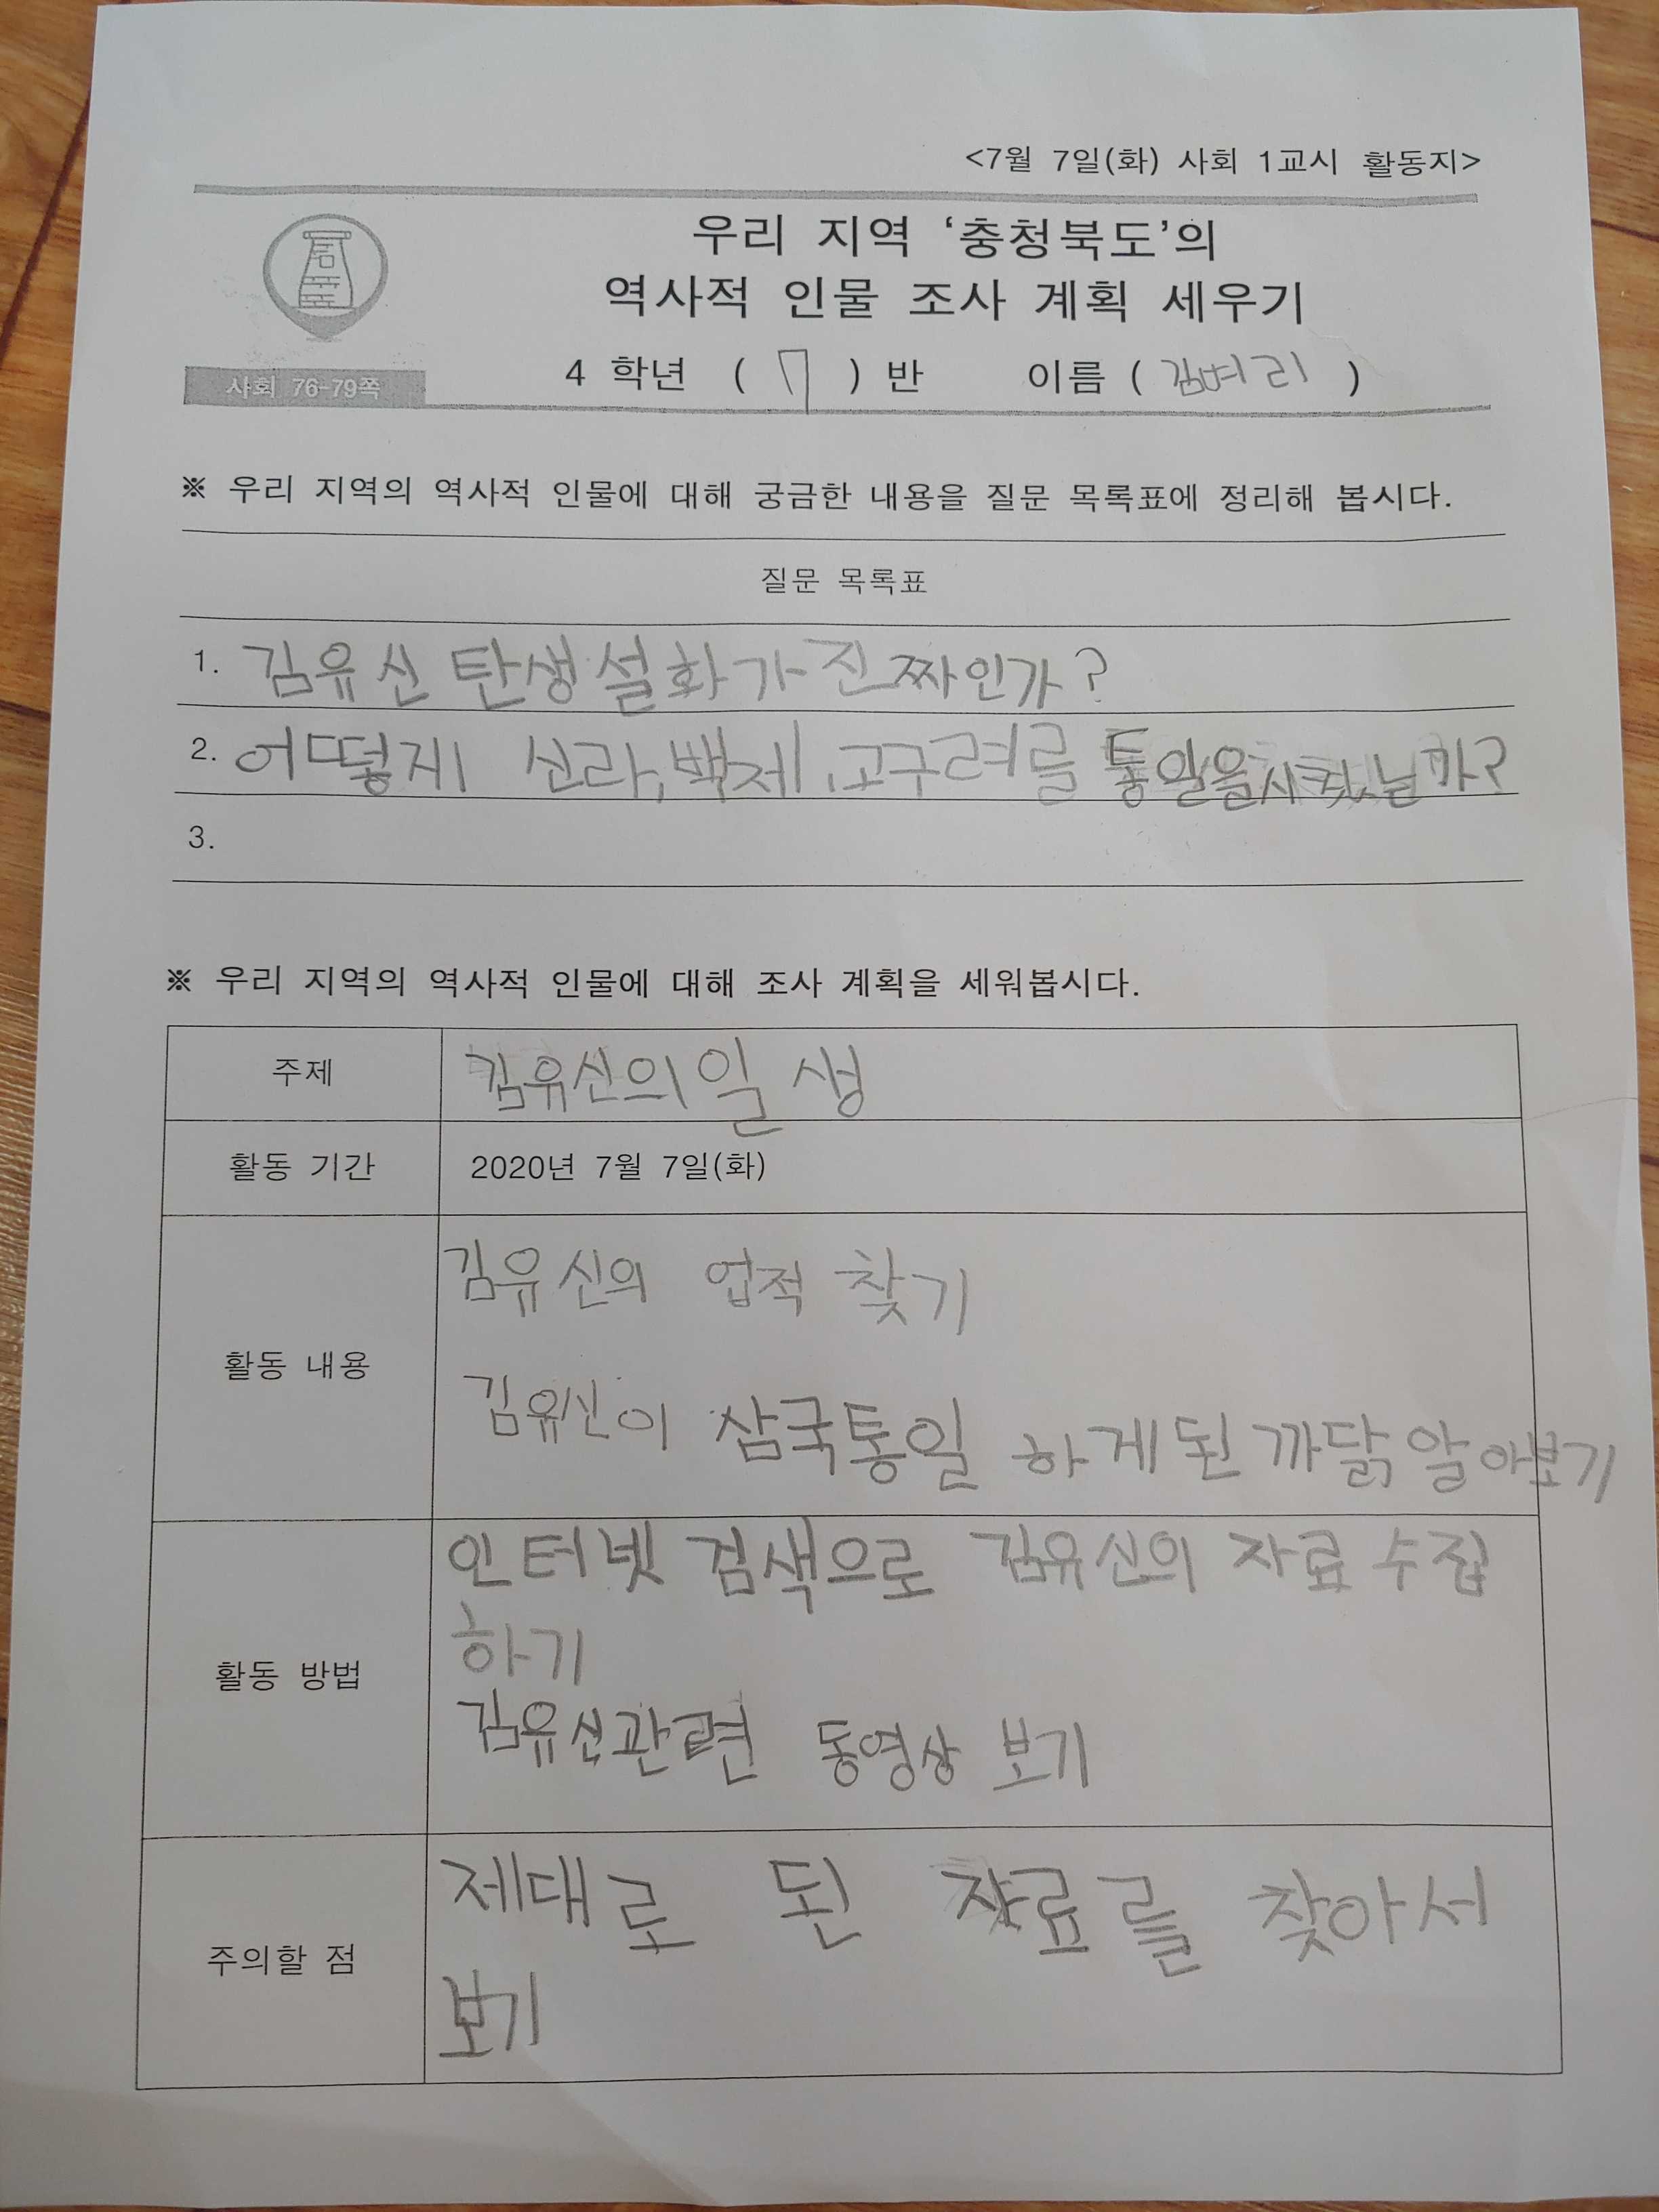 <7월 7일(화) 사회 1교시 활동지>
우리 지역 ‘충청북도’의
역사적 인물 조사 계획 세우기
사회 76-79쪽
4 학년 ( 7 ) 반 이름 ( 김벼리 )
※ 우리 지역의 역사적 인물에 대해 궁금한 내용을 질문 목록표에 정리해 봅시다.
질문 목록표
1. 김유신 탄생설화가 진짜인가?
2. 어떻게 신라, 백제, 고구려를 통일을시켰닐까?
3.
※ 우리 지역의 역사적 인물에 대해 조사 계획을 세워봅시다.
주제
김유신의 일생
활동 기간
2020년 7월 7일(화)
활동 내용
김유신의 업적 찾기
김유신이 삼국통일 하게된 까닭 알아보기
활동 방법
인터넷 검색으로 김유신의 자료 수집
하기
김유신관련 동영상 보기
주의할 점
제대로 된 자료를 찾아서
보기